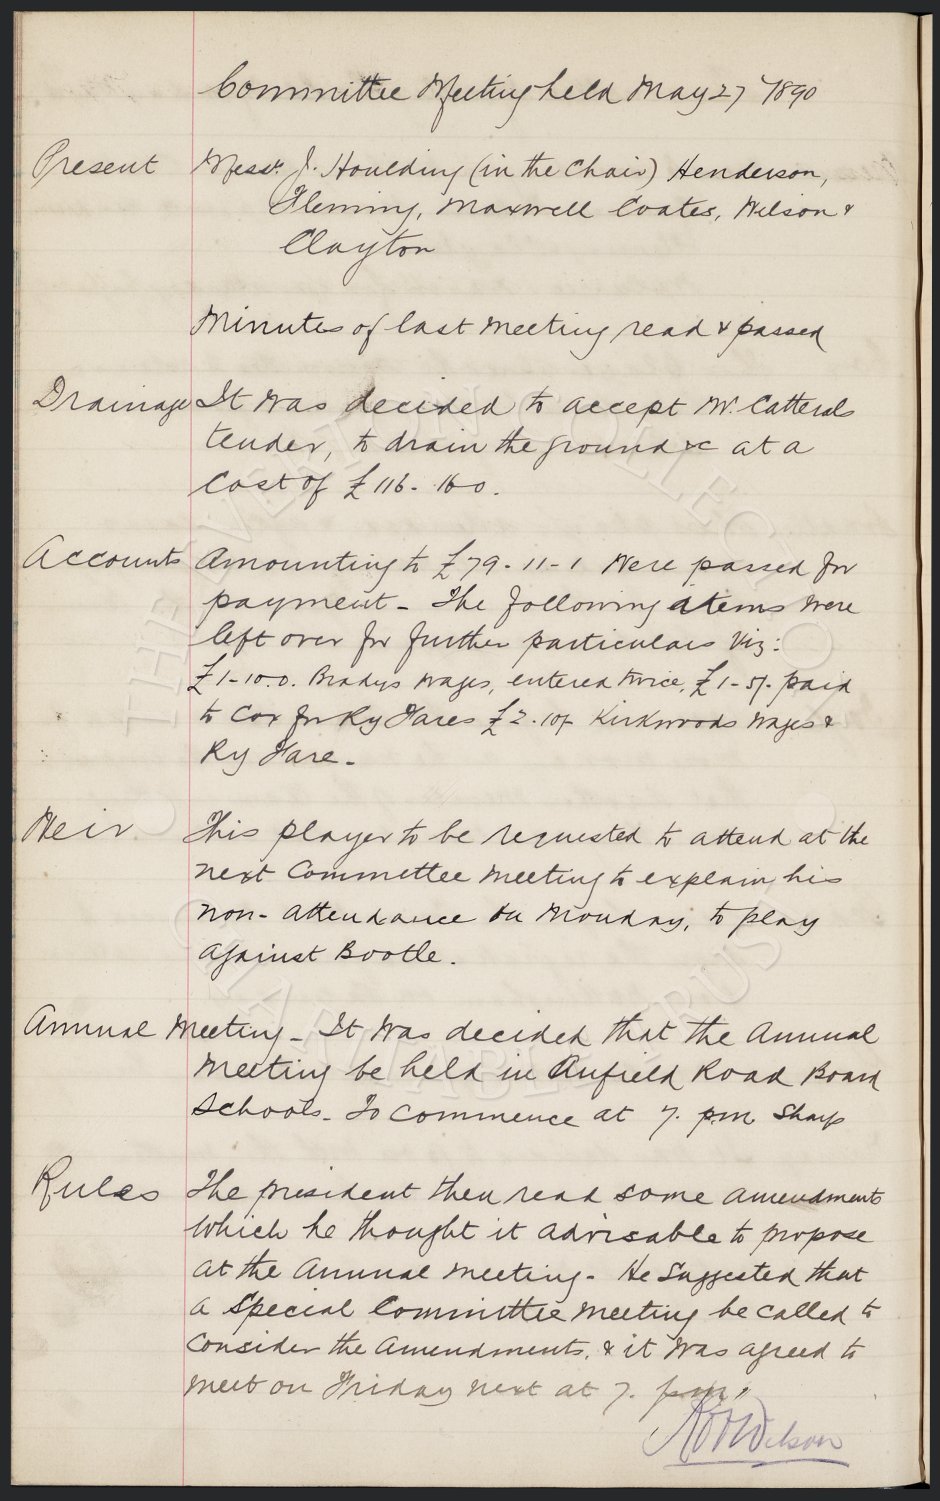 Committee Meeting held May 27 1890
Present Messrs J. Houlding (in the Chair) Henderson,
Fleming, Maxwell Coates, Wilson &
Clayton
Minutes of last meeting read & passed
Drainage It was decided to accept Mr. Catterals
tender, to drain the ground &c at a
Cost of £116-16-0.
Accounts Amounting to £79-11-1 were passed for
payment - The following items were
left over for further particulars viz:
£1-10.0. Bradys wages, entered twice, £1-5/- paid
to Cox for Ry Fares £2-10/- Kirkwoods wages &
Ry Fare -
Weir This player to be requested to attend at the
next Committee Meeting to explain his
non-attendance on Monday, to play
against Bootle.
Annual Meeting - It was decided that the Annual
Meeting be held in Anfield Road Board
Schools. To commence at 7. p.m. Sharp
Rules The president then read some amendments
which he thought it advisable to propose
at the Annual Meeting - He suggested that
a special Committee Meeting be called to
consider the amendments, & it was agreed to
meet on Friday next at 7. pm.
Wilson
THE EVERTON COLLECTION
CHARITABLE TRUST